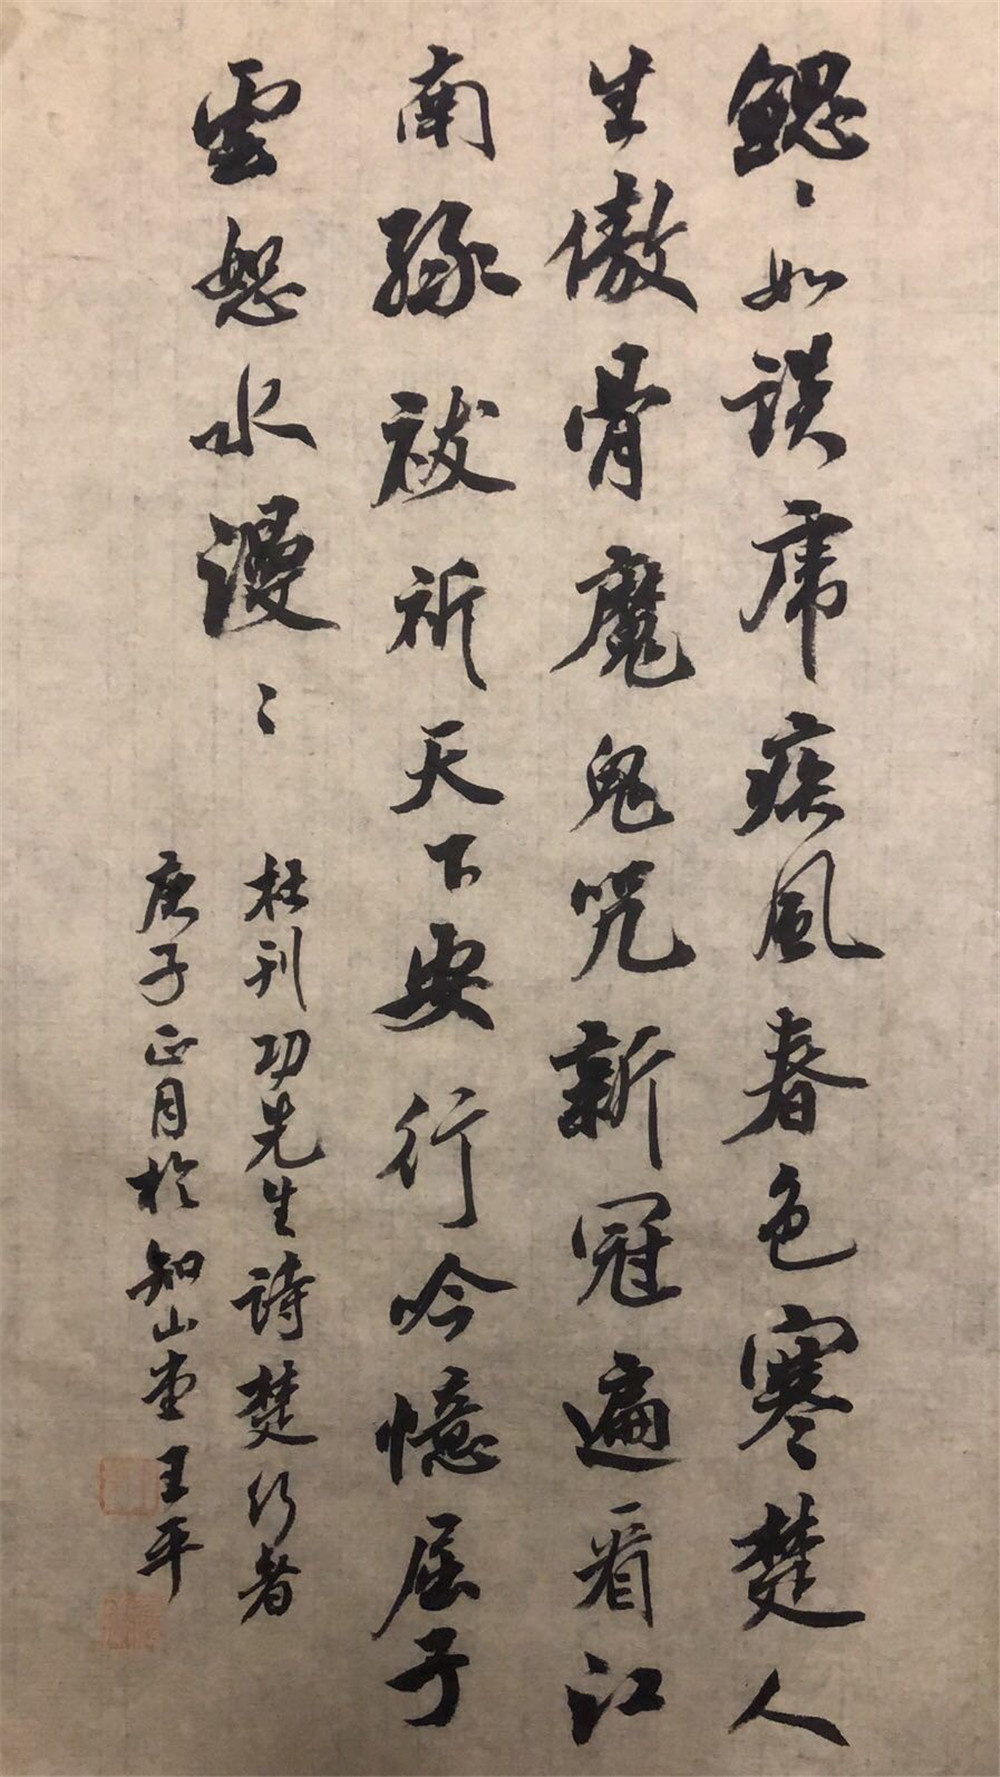 鰓〻如誤席疾風春色寒楚人
生傲骨魔鬼咒新冠遍看江
南緑祓祈天下安行吟憶屈子
雲怒水漫〻
杜刊功先生詩楚行者
庚子正月於知山堂王平